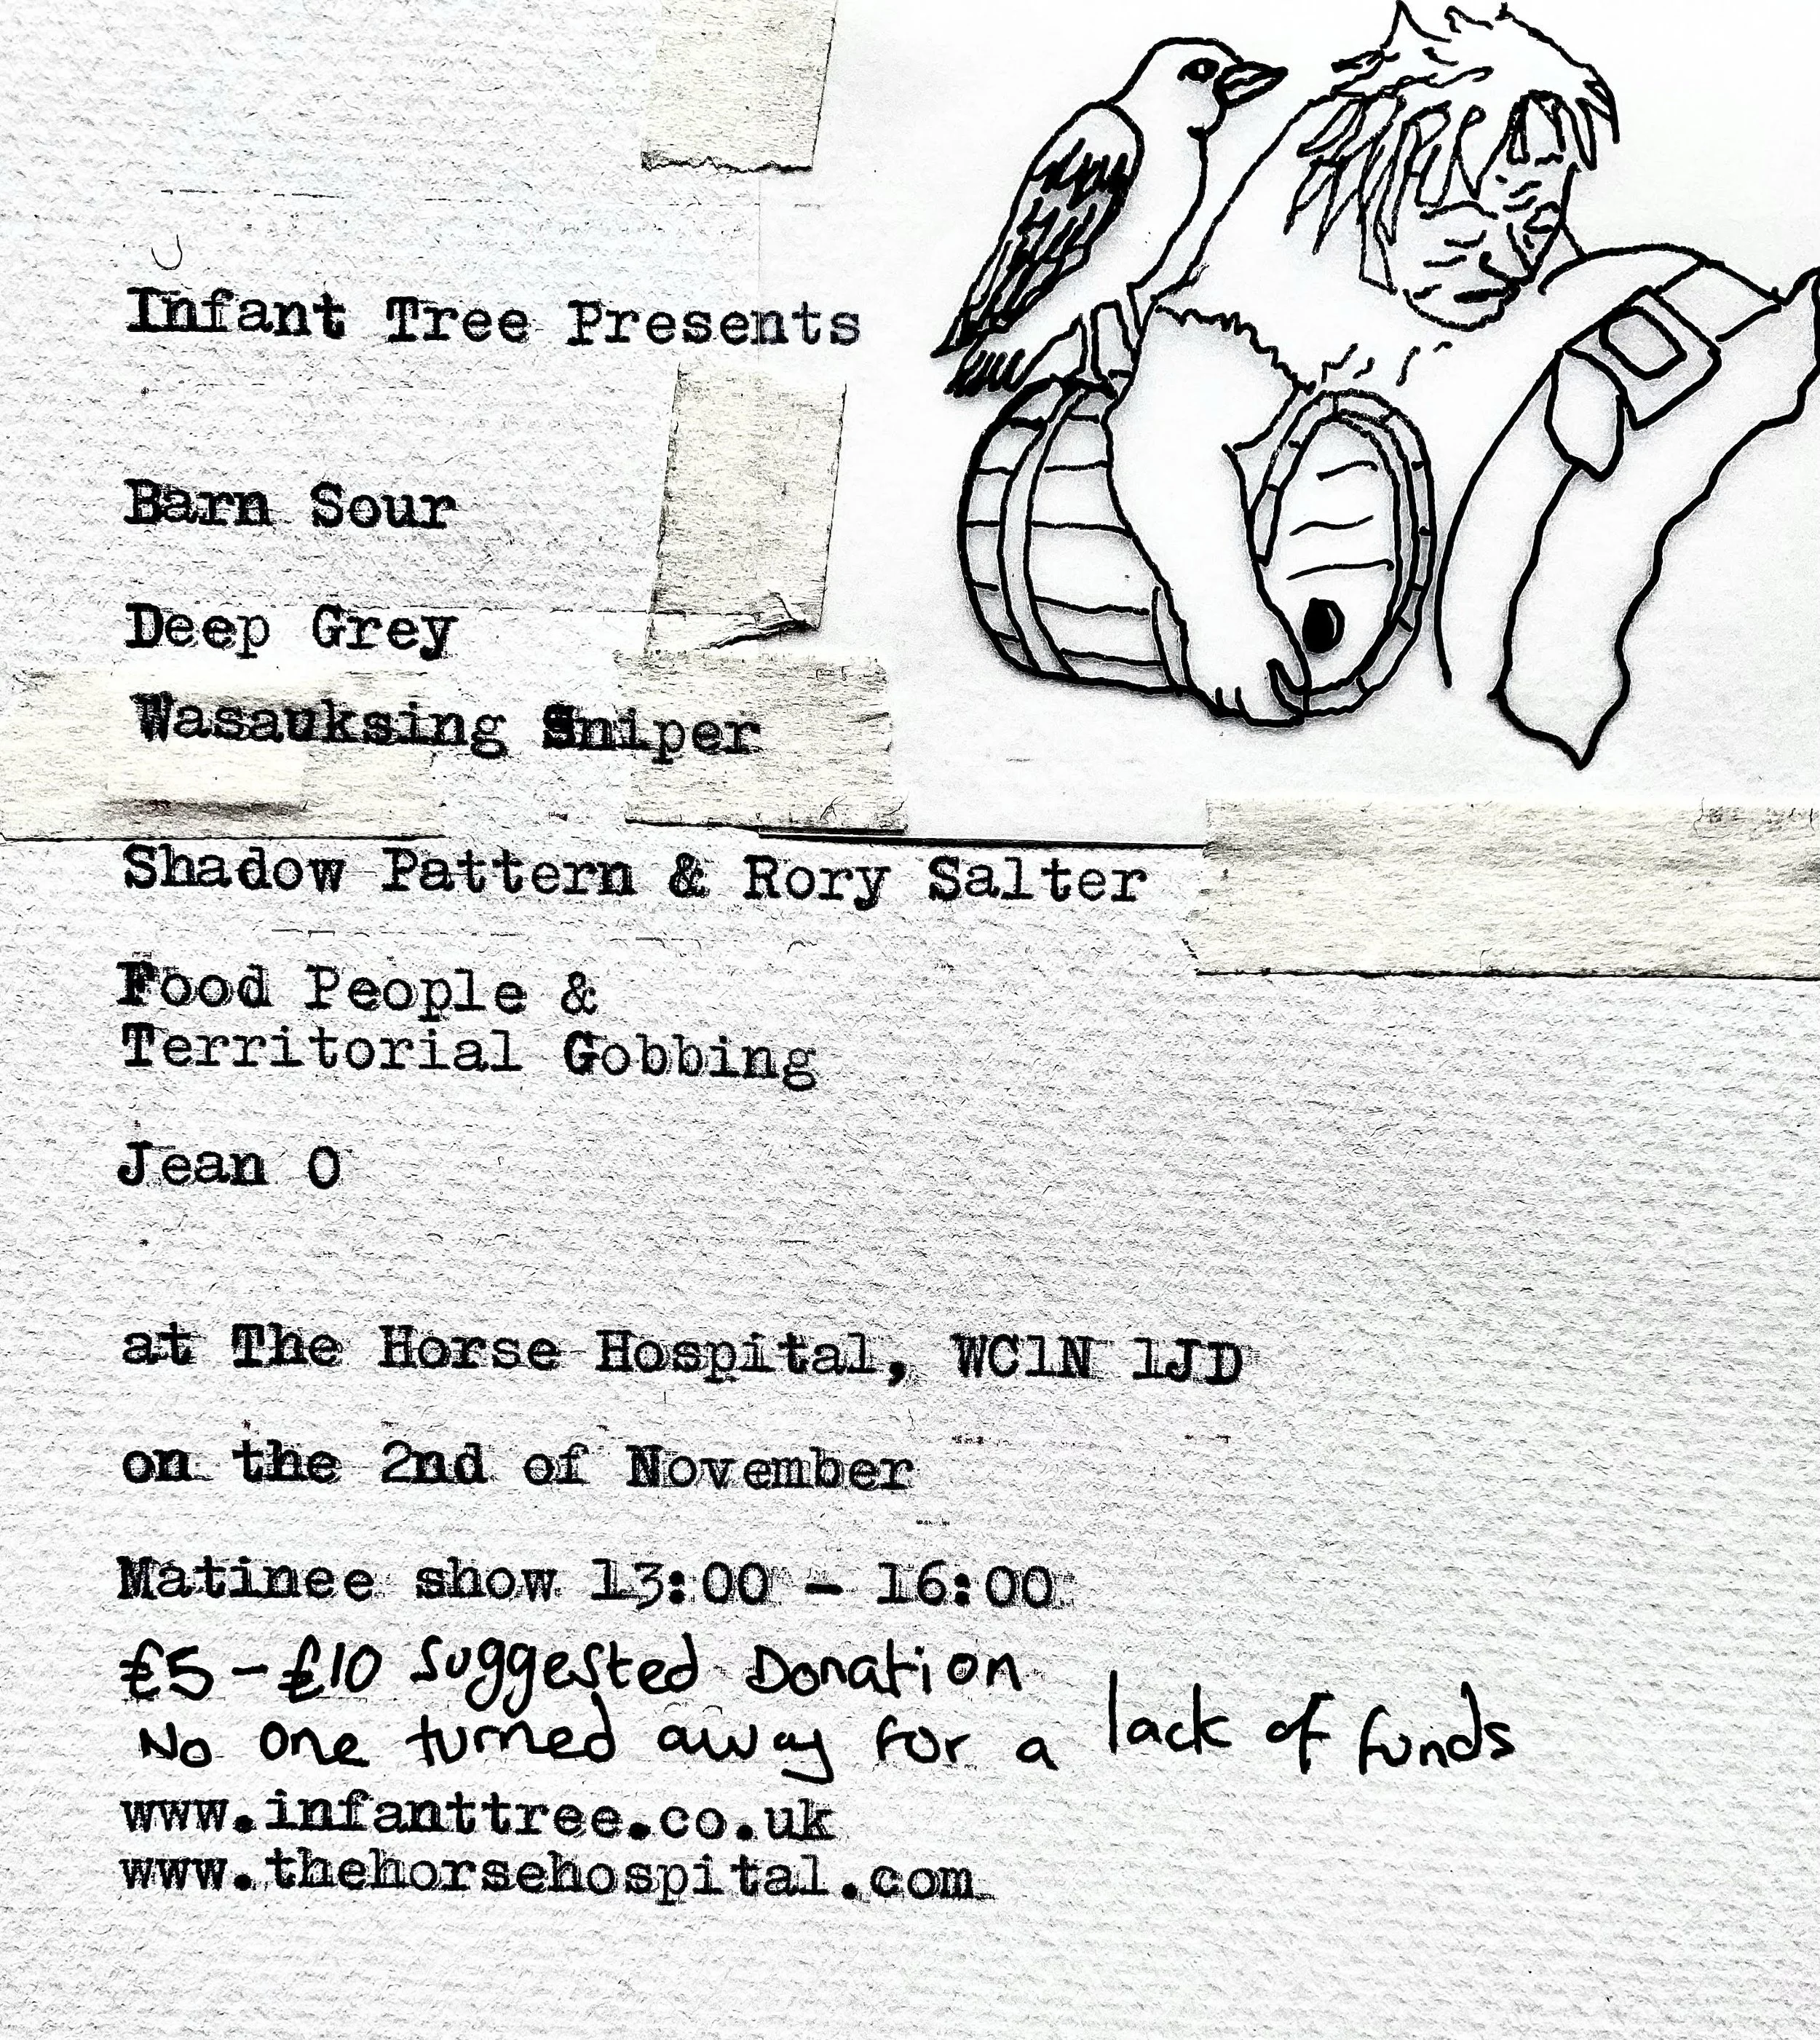 Infant Tree Presents
Barn Sour
Deep Grey
Wasauksing Sniper
Shadow Pattern & Rory Salter
Food People &
Territorial Gobbing
Jean O
at The Horse Hospital, WC1N 1JD
on the 2nd of November
Matinee show 13:00 - 16:00
£5-£10 Suggested Donation
No one turned away for a lack of funds
www.infanttree.co.uk
www.thehorsehospital.com